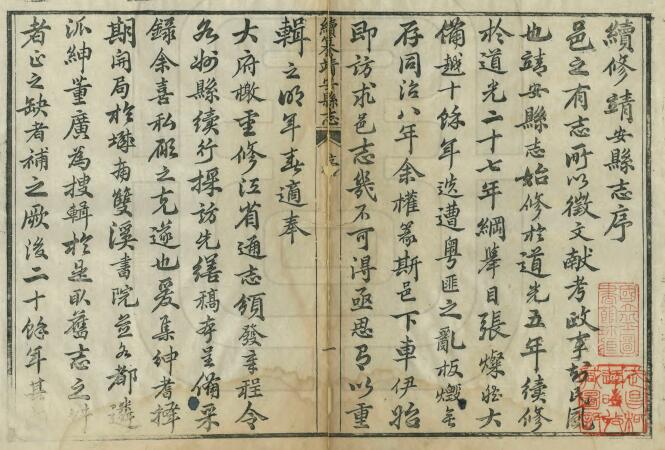 續修靖安縣志序
邑之有志所以徵文献考政事
也靖安縣志始修於道光五年續修
於道光二十七年綱舉目張燦然大
備越十餘年迭遭粵匪之亂板燬無
存同治八年余權篆斯邑下車伊始
即訪求邑志幾不可得亟思有以重
續纂靖安縣志
序
一
輯之明年春適奉
大府檄重修江省通志頒發章程令
各州縣續行採訪先繕稿本呈備采
錄余喜私願之克遂也爰集紳耆擇
期開局於城南雙溪書院並各都遴
派紳董廣為搜輯於是取舊志之
者正之缺者補之厥後二十餘年其